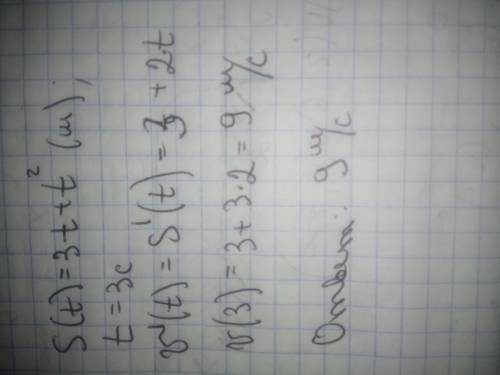 S(t)=3t+t² (м),
t=3c
v(t)=S'(t)=3+2t
v(3)=3+3·2=9 м/c
Ответ: 9 м/c